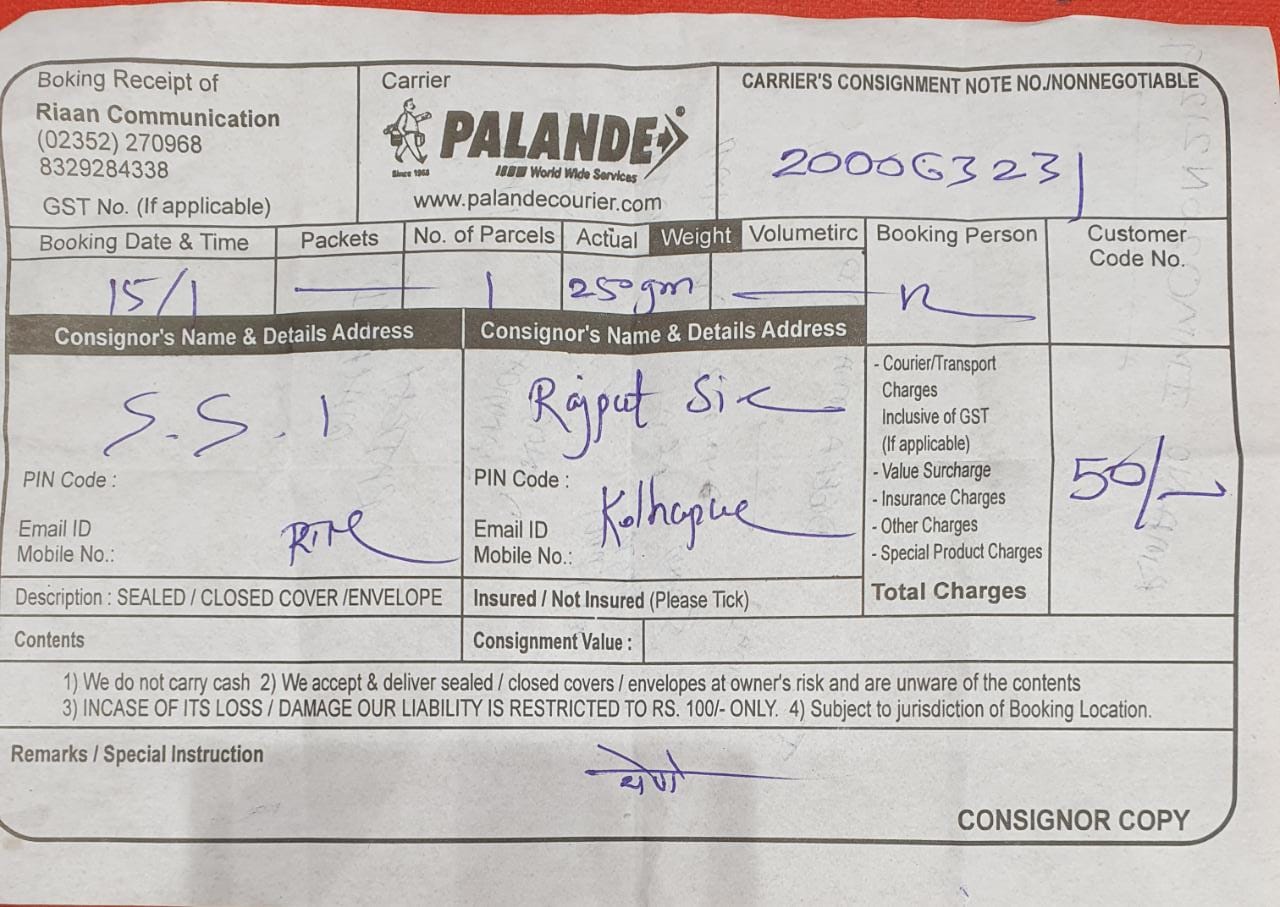 Boking Receipt of
Riaan Communication
(02352) 270968
8329284338
GST No. (If applicable)
Carrier
PALANDE
Since 1968
World Wide Services
www.palandecourier.com
CARRIER'S CONSIGNMENT NOTE NO./NONNEGOTIABLE
200063231
Booking Date & Time
15/1
Packets
No. of Parcels
1
Actual Weight Volumetirc
250gm
Booking Person
Customer
Code No.
Consignor's Name & Details Address
S.S.1
PIN Code :
Email ID
Mobile No.:
Consignor's Name & Details Address
Rajput Sir
PIN Code :
Kolhapur
Email ID
Mobile No.:
- Courier/Transport
Charges
Inclusive of GST
(If applicable)
- Value Surcharge
- Insurance Charges
- Other Charges
- Special Product Charges
Total Charges
50/-
Description : SEALED / CLOSED COVER /ENVELOPE
Insured / Not Insured (Please Tick)
Contents
Consignment Value :
1) We do not carry cash 2) We accept & deliver sealed / closed covers / envelopes at owner's risk and are unware of the contents
3) INCASE OF ITS LOSS / DAMAGE OUR LIABILITY IS RESTRICTED TO RS. 100/- ONLY. 4) Subject to jurisdiction of Booking Location.
Remarks / Special Instruction
CONSIGNOR COPY